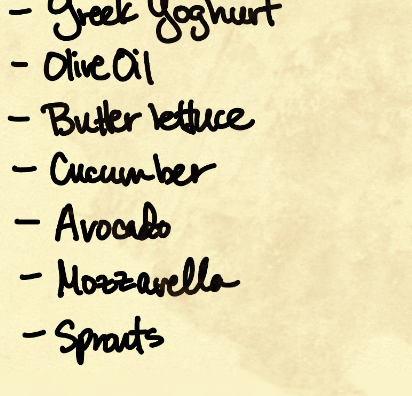 - Greek Yoghurt
- Olive Oil
- Butter lettuce
- Cucumber
- Avocado
- Mozzarella
- Sprouts